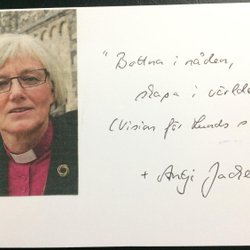 "Bottna i nåden,
skapa i värld
(Vision för Lunds s
+ Antje Jacke